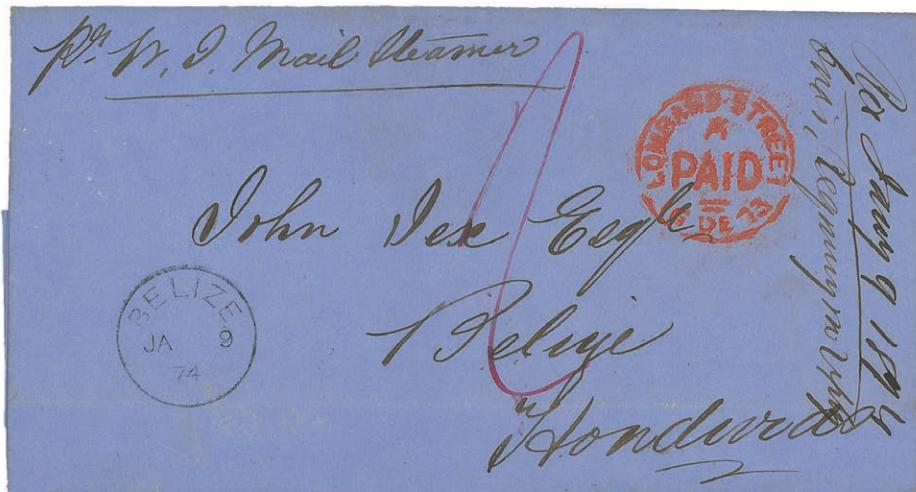 pr. W. I. Mail Steamer
LOMBARD STREET
PAID
DE 73
John Jex Esqre
Belize
Honduras
BELIZE
JA 9
74
Jany 9 1874